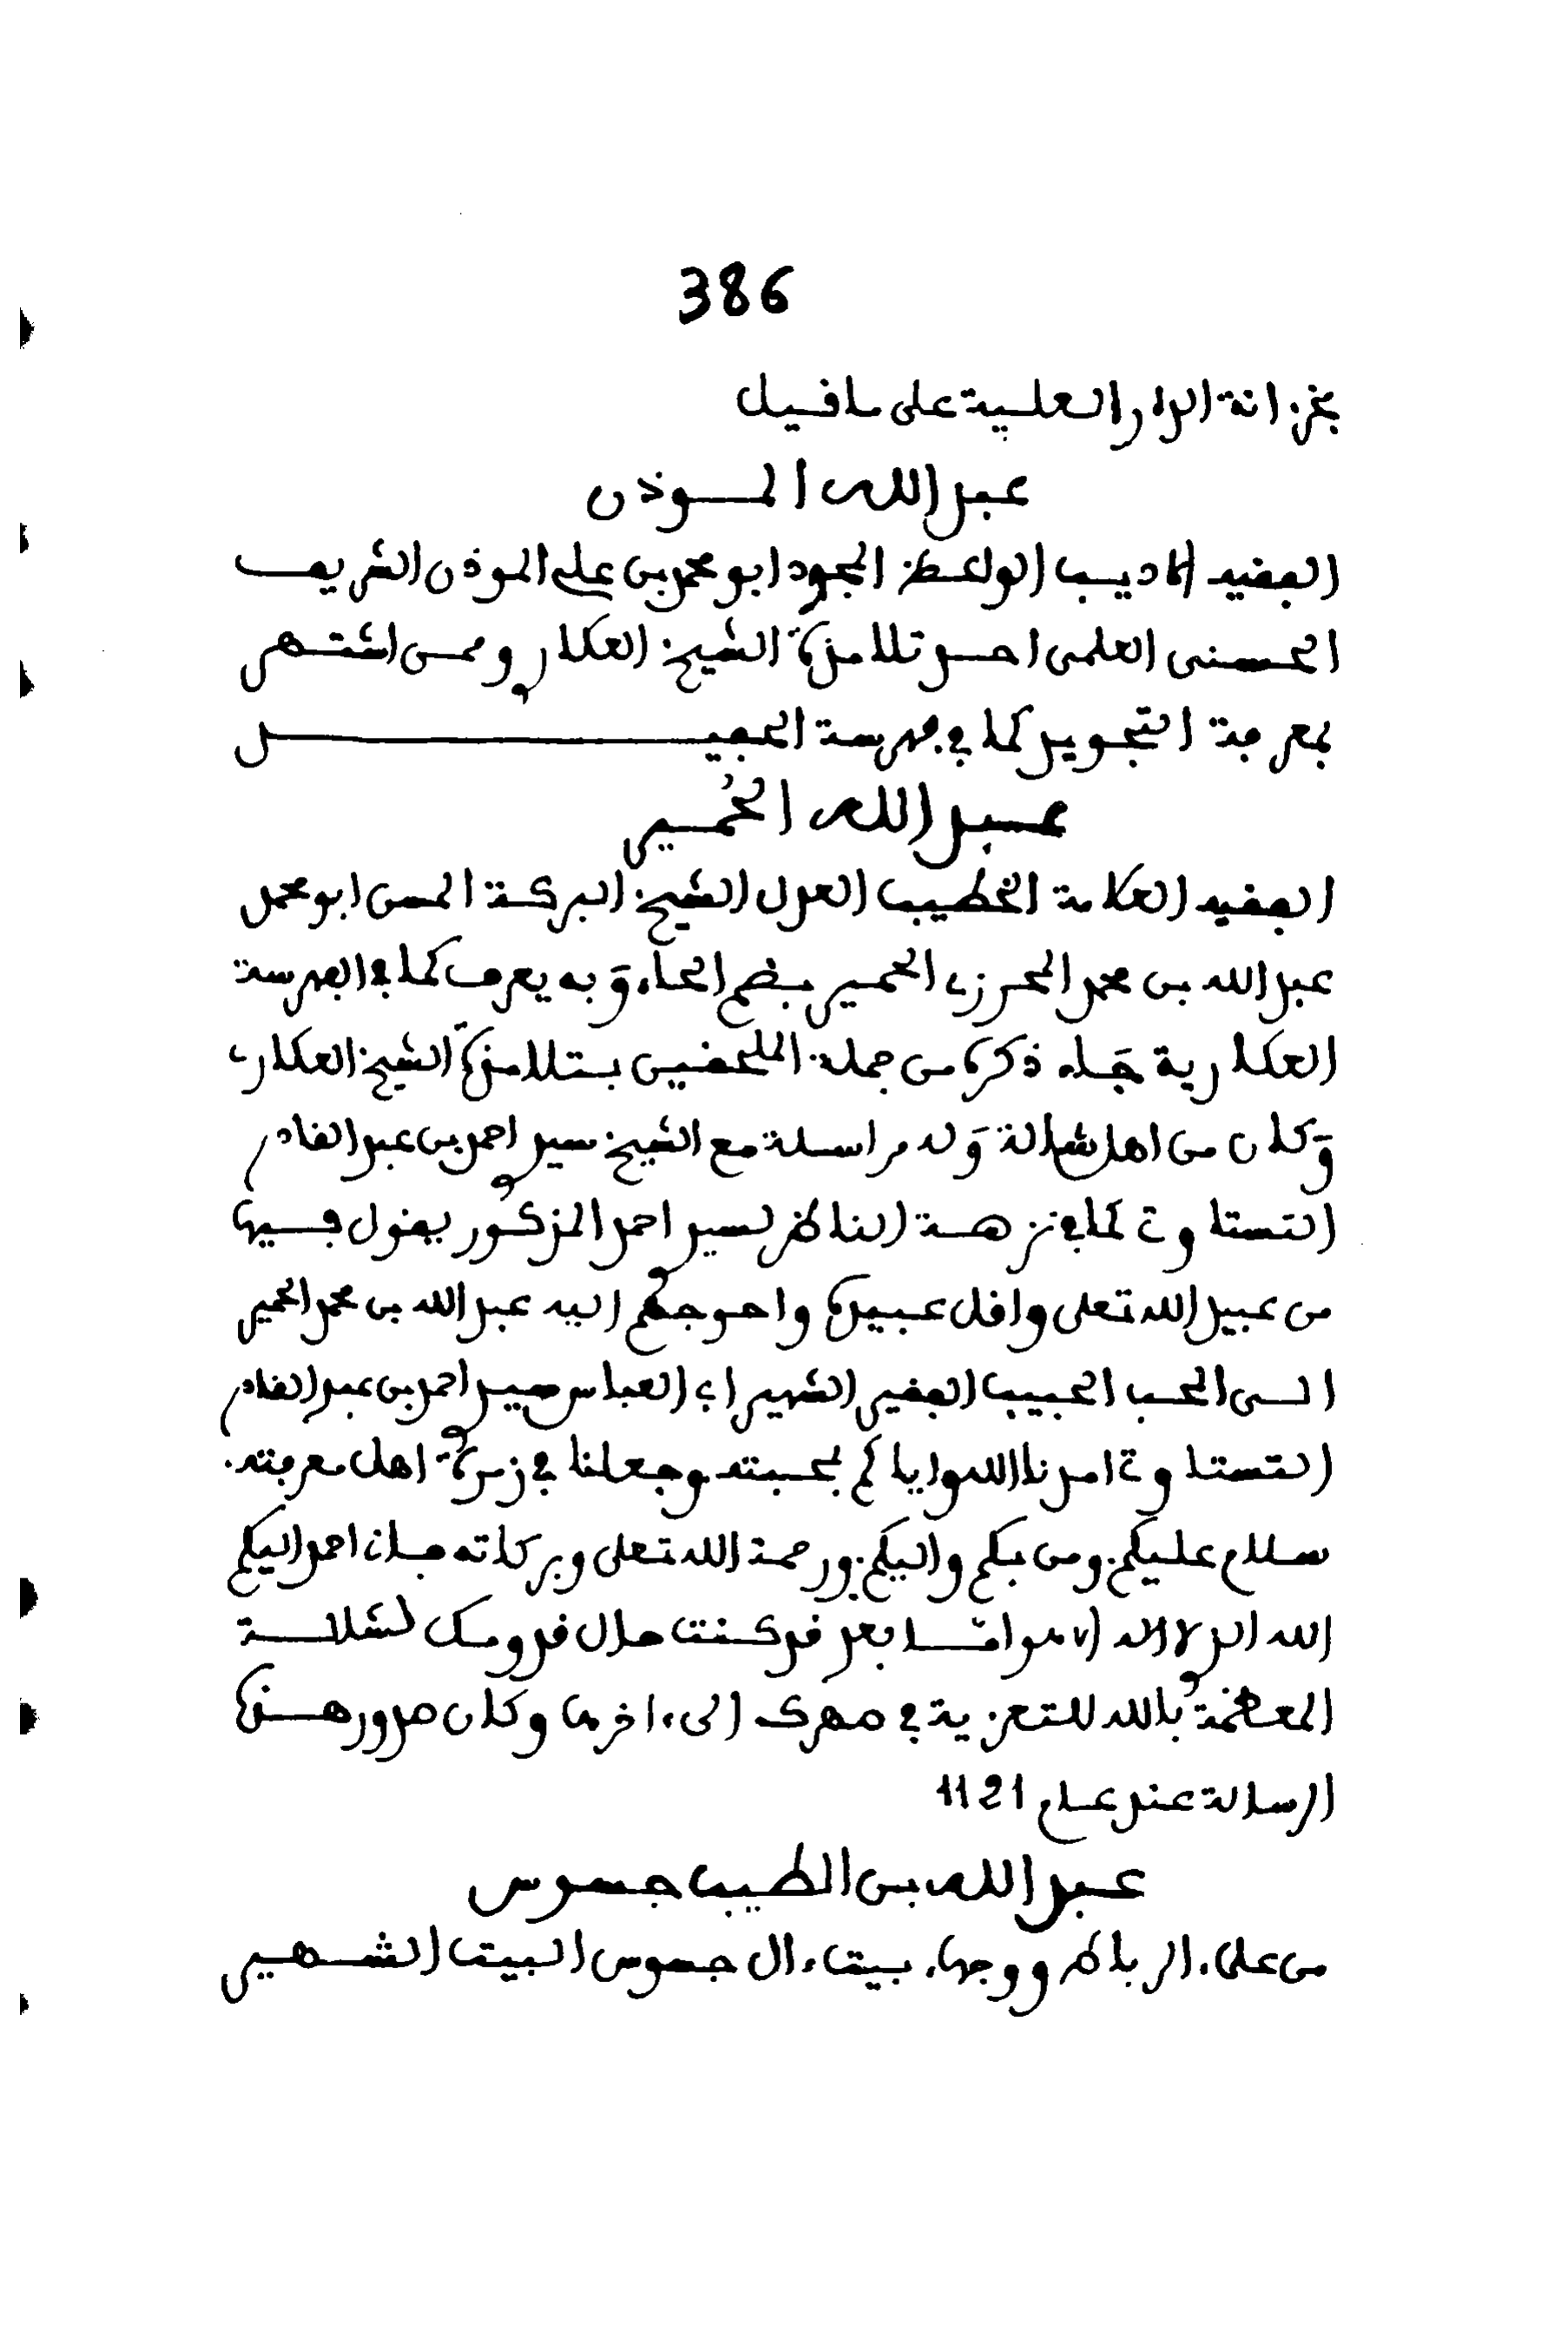 386
بخزانة الدار العلية على ما قيل
عبد الله الموذن
الفقيه الاديب الواعظ المجود ابو محمد بن علي الموذن الشريف
الحسني العلمي احد تلامذة الشيخ العكاري وممن اشتهر
بمعرفة التجويد كما في فهرسة الحفيل
عبد الله الحُمير
الفقيه العلامة الخطيب العدل الشيخ البركة المسن ابو محمد
عبد الله بن محمد المحرزي الحمير بضم الحاء وَبه يعرف كما في الفهرسة
العكارية جَاء ذكره من جملة الملحقين بتلامذة الشيخ العكاري
وَكان من اهل شالة وَله مراسلة مع الشيخ سيدي احمد بن عبد القادر
التستاوتي كما في نزهة الناظر لسيدي احمد المذكور يقول فيها
من عبيد الله تعلى واقل عبيده واحوجهم اليه عبد الله بن محمد الحمير
الى المحب الحبيب الفقير الشهير ابي العباس سيدي احمد بن عبد القادر
التستاوتي امدنا الله واياكم بمحبته وجعلنا في زمرة اهل معرفته
سلام عليكم ومن بكم واليكم ورحمة الله تعلى وبركاته فاني احمد اليكم
الله الذي لا اله الا هو اما بعد فقد كنت حال قدومك لشالة
المعظمة بالله للتعزية في صهرك الى ءاخرها وكان صدور هذه
الرسالة عند عام 1121
عبد الله بن الطيب جسوس
من علماء الرباط ووجهاء بيت ءال جسوس البيت الشهير